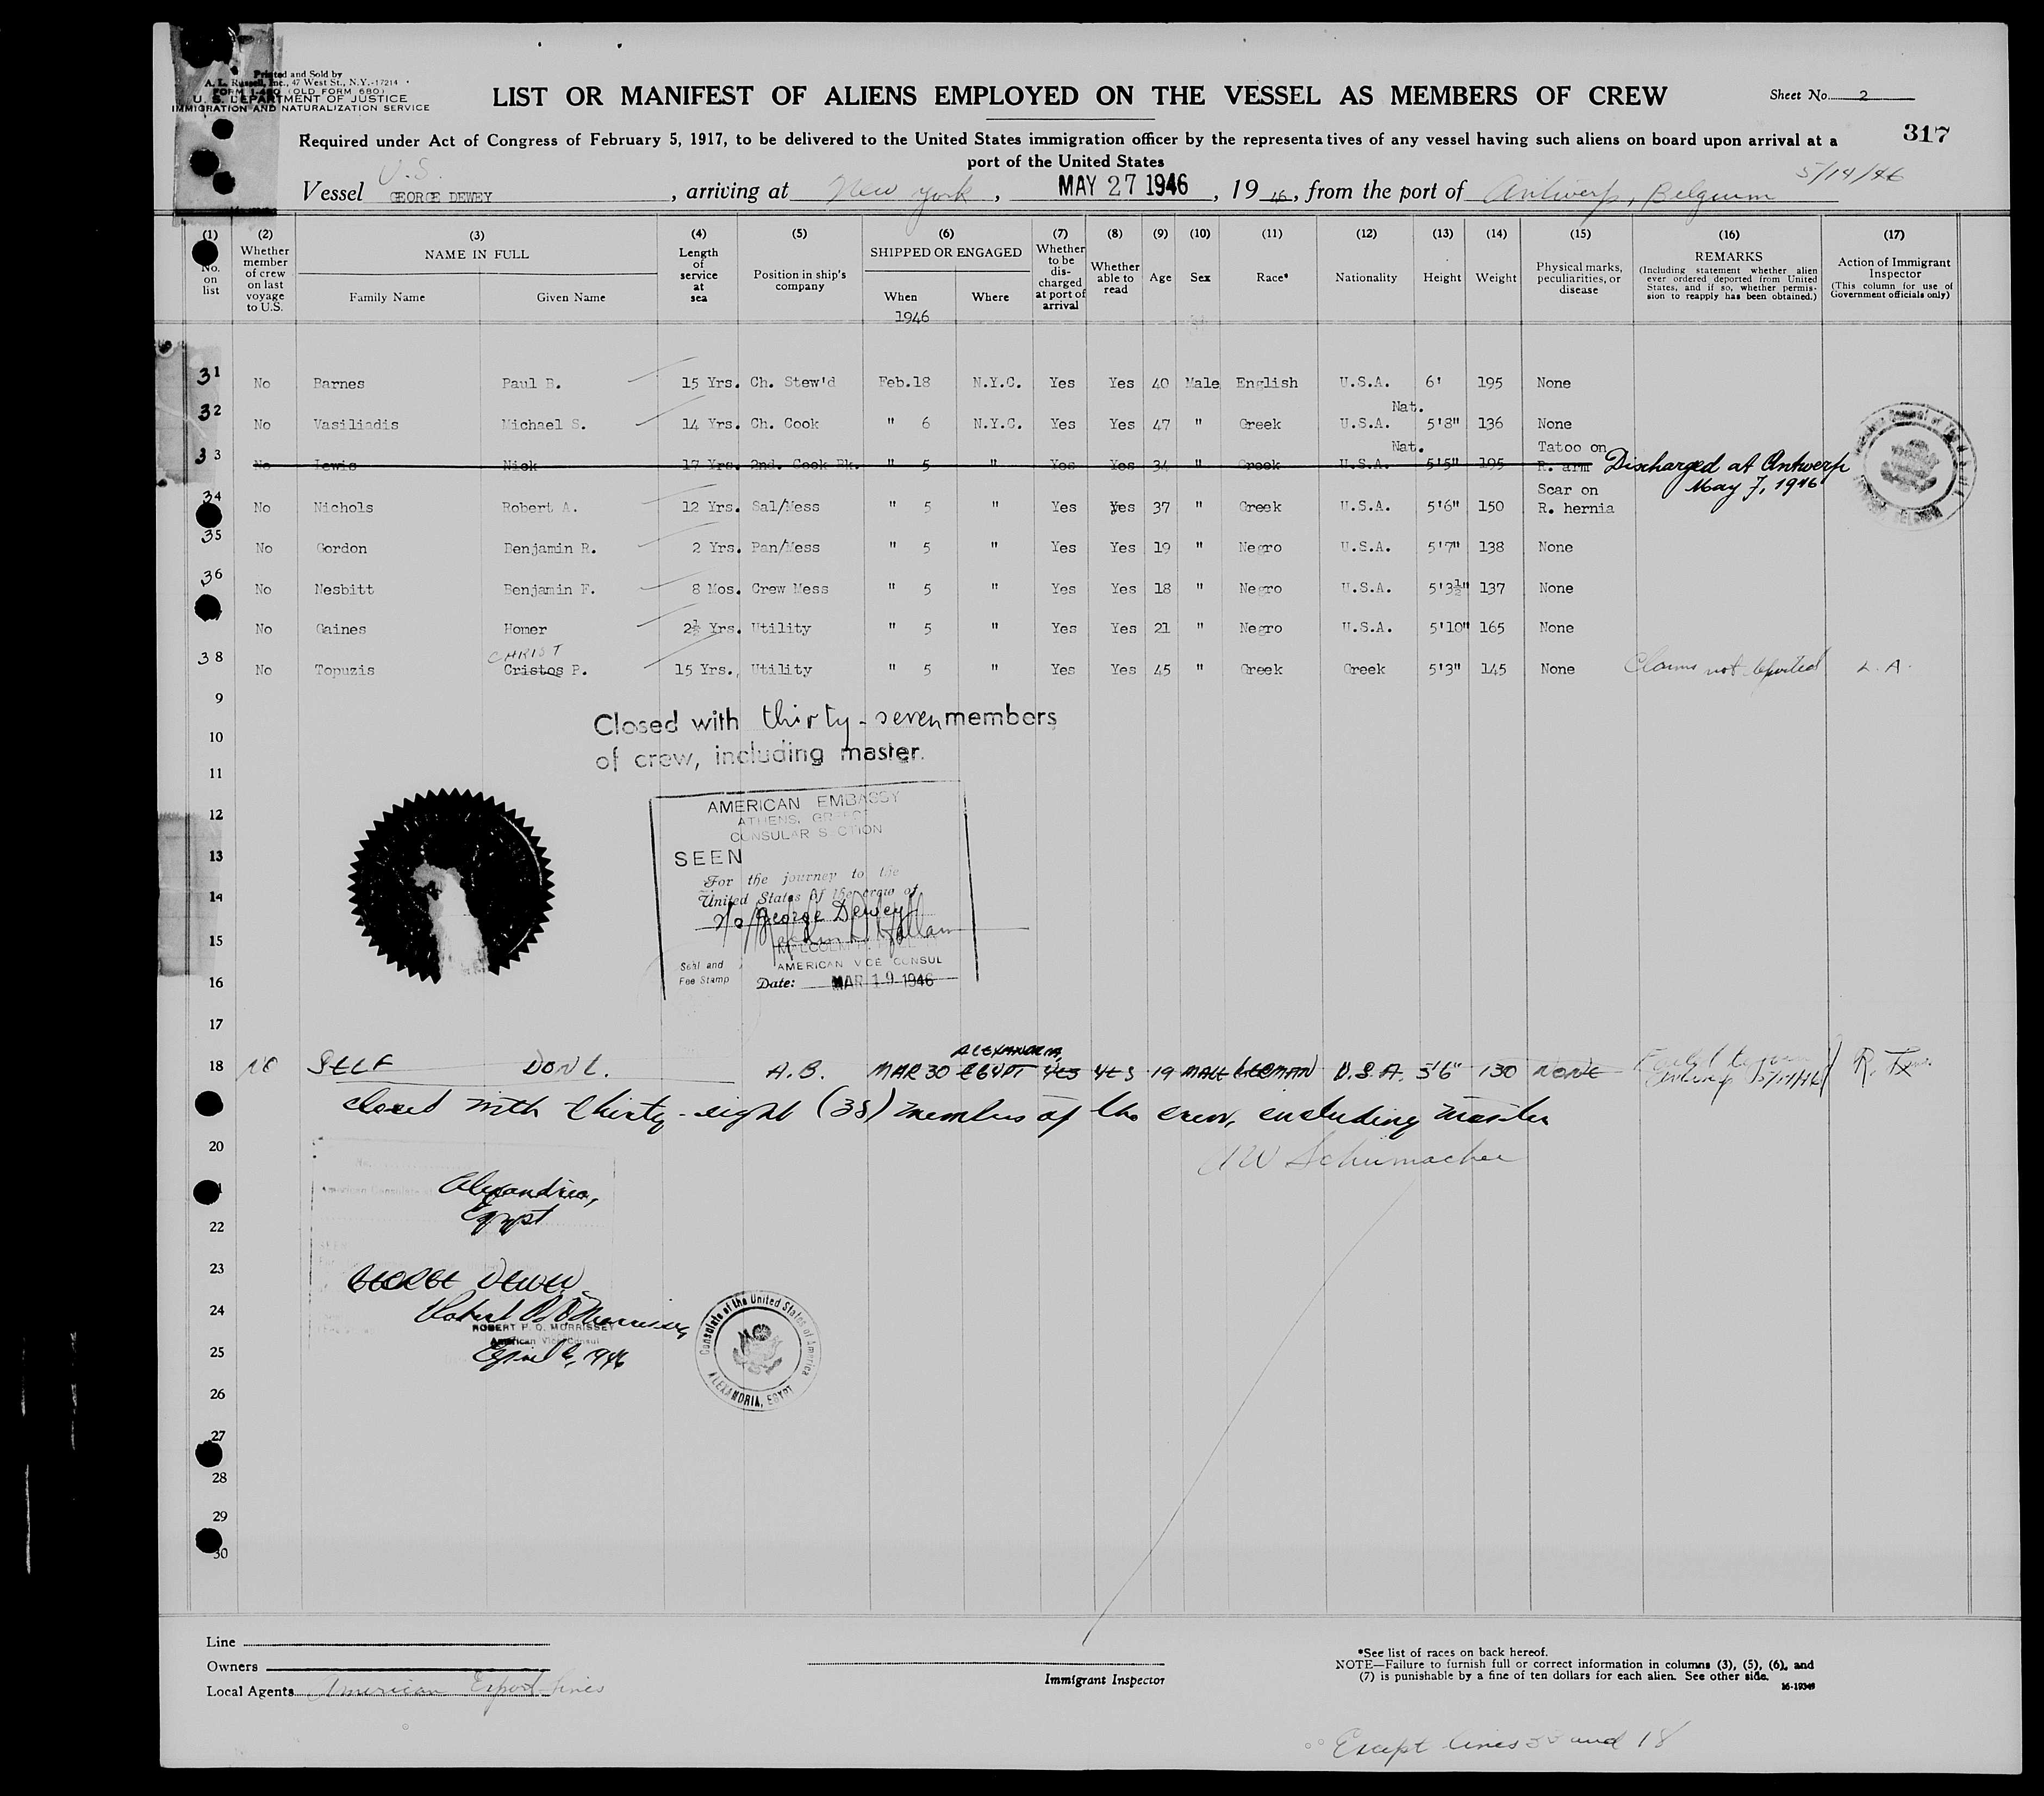 Printed and Sold by
A. L. Russell, Inc., 47 West St., N.Y.-17214
FORM I-480 (OLD FORM 680)
U. S. DEPARTMENT OF JUSTICE
IMMIGRATION AND NATURALIZATION SERVICE
LIST OR MANIFEST OF ALIENS EMPLOYED ON THE VESSEL AS MEMBERS OF CREW
Sheet No. 2
317
Required under Act of Congress of February 5, 1917, to be delivered to the United States immigration officer by the representatives of any vessel having such aliens on board upon arrival at a
port of the United States
U.S. 5/14/46
Vessel GEORGE DEWEY, arriving at New York, MAY 27 1946, 19 46, from the port of Antwerp, Belgium
(1) No. on list
(2) Whether member of crew on last voyage to U.S.
(3) NAME IN FULL Family Name Given Name
(4) Length of service at sea
(5) Position in ship's company
(6) SHIPPED OR ENGAGED When Where
1946
(7) Whether to be discharged at port of arrival
(8) Whether able to read
(9) Age
(10) Sex
(11) Race*
(12) Nationality
(13) Height
(14) Weight
(15) Physical marks, peculiarities, or disease
(16) REMARKS (Including statement whether alien ever ordered deported from United States, and if so, whether permission to reapply has been obtained.)
(17) Action of Immigrant Inspector (This column for use of Government officials only)
31 No Barnes Paul B. 15 Yrs. Ch. Stew'd Feb.18 N.Y.C. Yes Yes 40 Male English U.S.A. 6' 195 None
Nat.
32 No Vasiliadis Michael S. 14 Yrs. Ch. Cook " 6 N.Y.C. Yes Yes 47 " Greek U.S.A. 5'8" 136 None
Nat. Tatoo on
33 No Lewis Nick 17 Yrs. 2nd. Cook Bk. " 5 " Yes Yes 34 " Greek U.S.A. 5'5" 195 R. arm Discharged at Antwerp
May 7, 1946
Scar on
34 No Nichols Robert A. 12 Yrs. Sal/Mess " 5 " Yes Yes 37 " Greek U.S.A. 5'6" 150 R. hernia
35 No Gordon Benjamin R. 2 Yrs. Pan/Mess " 5 " Yes Yes 19 " Negro U.S.A. 5'7" 138 None
36 No Nesbitt Benjamin F. 8 Mos. Crew Mess " 5 " Yes Yes 18 " Negro U.S.A. 5'3½" 137 None
No Gaines Homer 2½ Yrs. Utility " 5 " Yes Yes 21 " Negro U.S.A. 5'10" 165 None
CHRIST
38 No Topuzis Cristos P. 15 Yrs. Utility " 5 " Yes Yes 45 " Greek Greek 5'3" 145 None Claims not deported L.A.
9
Closed with thirty-seven members
10
of crew, including master.
11
AMERICAN EMBASSY
12
ATHENS, GREECE
CONSULAR SECTION
13
SEEN
For the journey to the
14
United States of the crew of
George Dewey
15
AMERICAN VICE CONSUL
Seal and
Fee Stamp
16
Date: MAR 19 1946
17
ALEXANDRIA,
18 NO SELF DON L. A.B. MAR 30 EGYPT YES YES 19 MALE GERMAN U.S.A. 5'6" 130 NONE Failed to join
Antwerp 5/14/46
closed with thirty-eight (38) members of the crew, including master
20
A W Schumacher
Alexandria,
Egypt
22
23
GEORGE DEWEY
24
ROBERT P. O. MORRISSEY
American Vice Consul
25
April 6, 1946
Consulate of the United States of America
ALEXANDRIA, EGYPT
26
27
28
29
30
Line
Owners
Local Agents American Export Lines
Immigrant Inspector
*See list of races on back hereof.
NOTE—Failure to furnish full or correct information in columns (3), (5), (6), and
(7) is punishable by a fine of ten dollars for each alien. See other side.
16-19349
Except lines 33 and 18